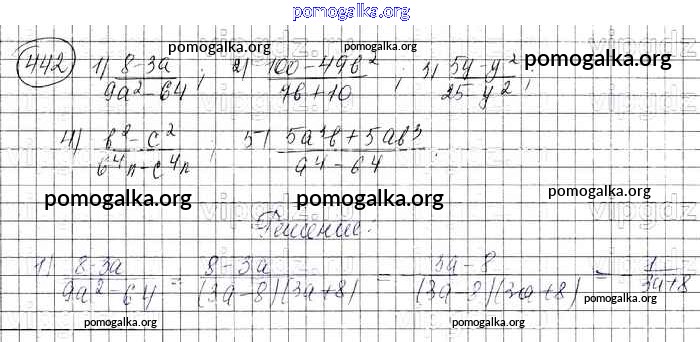 pomogalka.org
442 1) 8-3a / 9a²-64 ; 2) 100-49b² / 7b+10 ; 3) 5y-y² / 25-y² ;
4) b²-c² / b⁴n-c⁴n ; 5) 5a³b+5ab³ / a⁴-b⁴ .
pomogalka.org pomogalka.org pomogalka.org
Решение:
1) 8-3a / 9a²-64 = 8-3a / (3a-8)(3a+8) = - 3a-8 / (3a-8)(3a+8) = - 1 / 3a+8
pomogalka.org pomogalka.org pomogalka.org